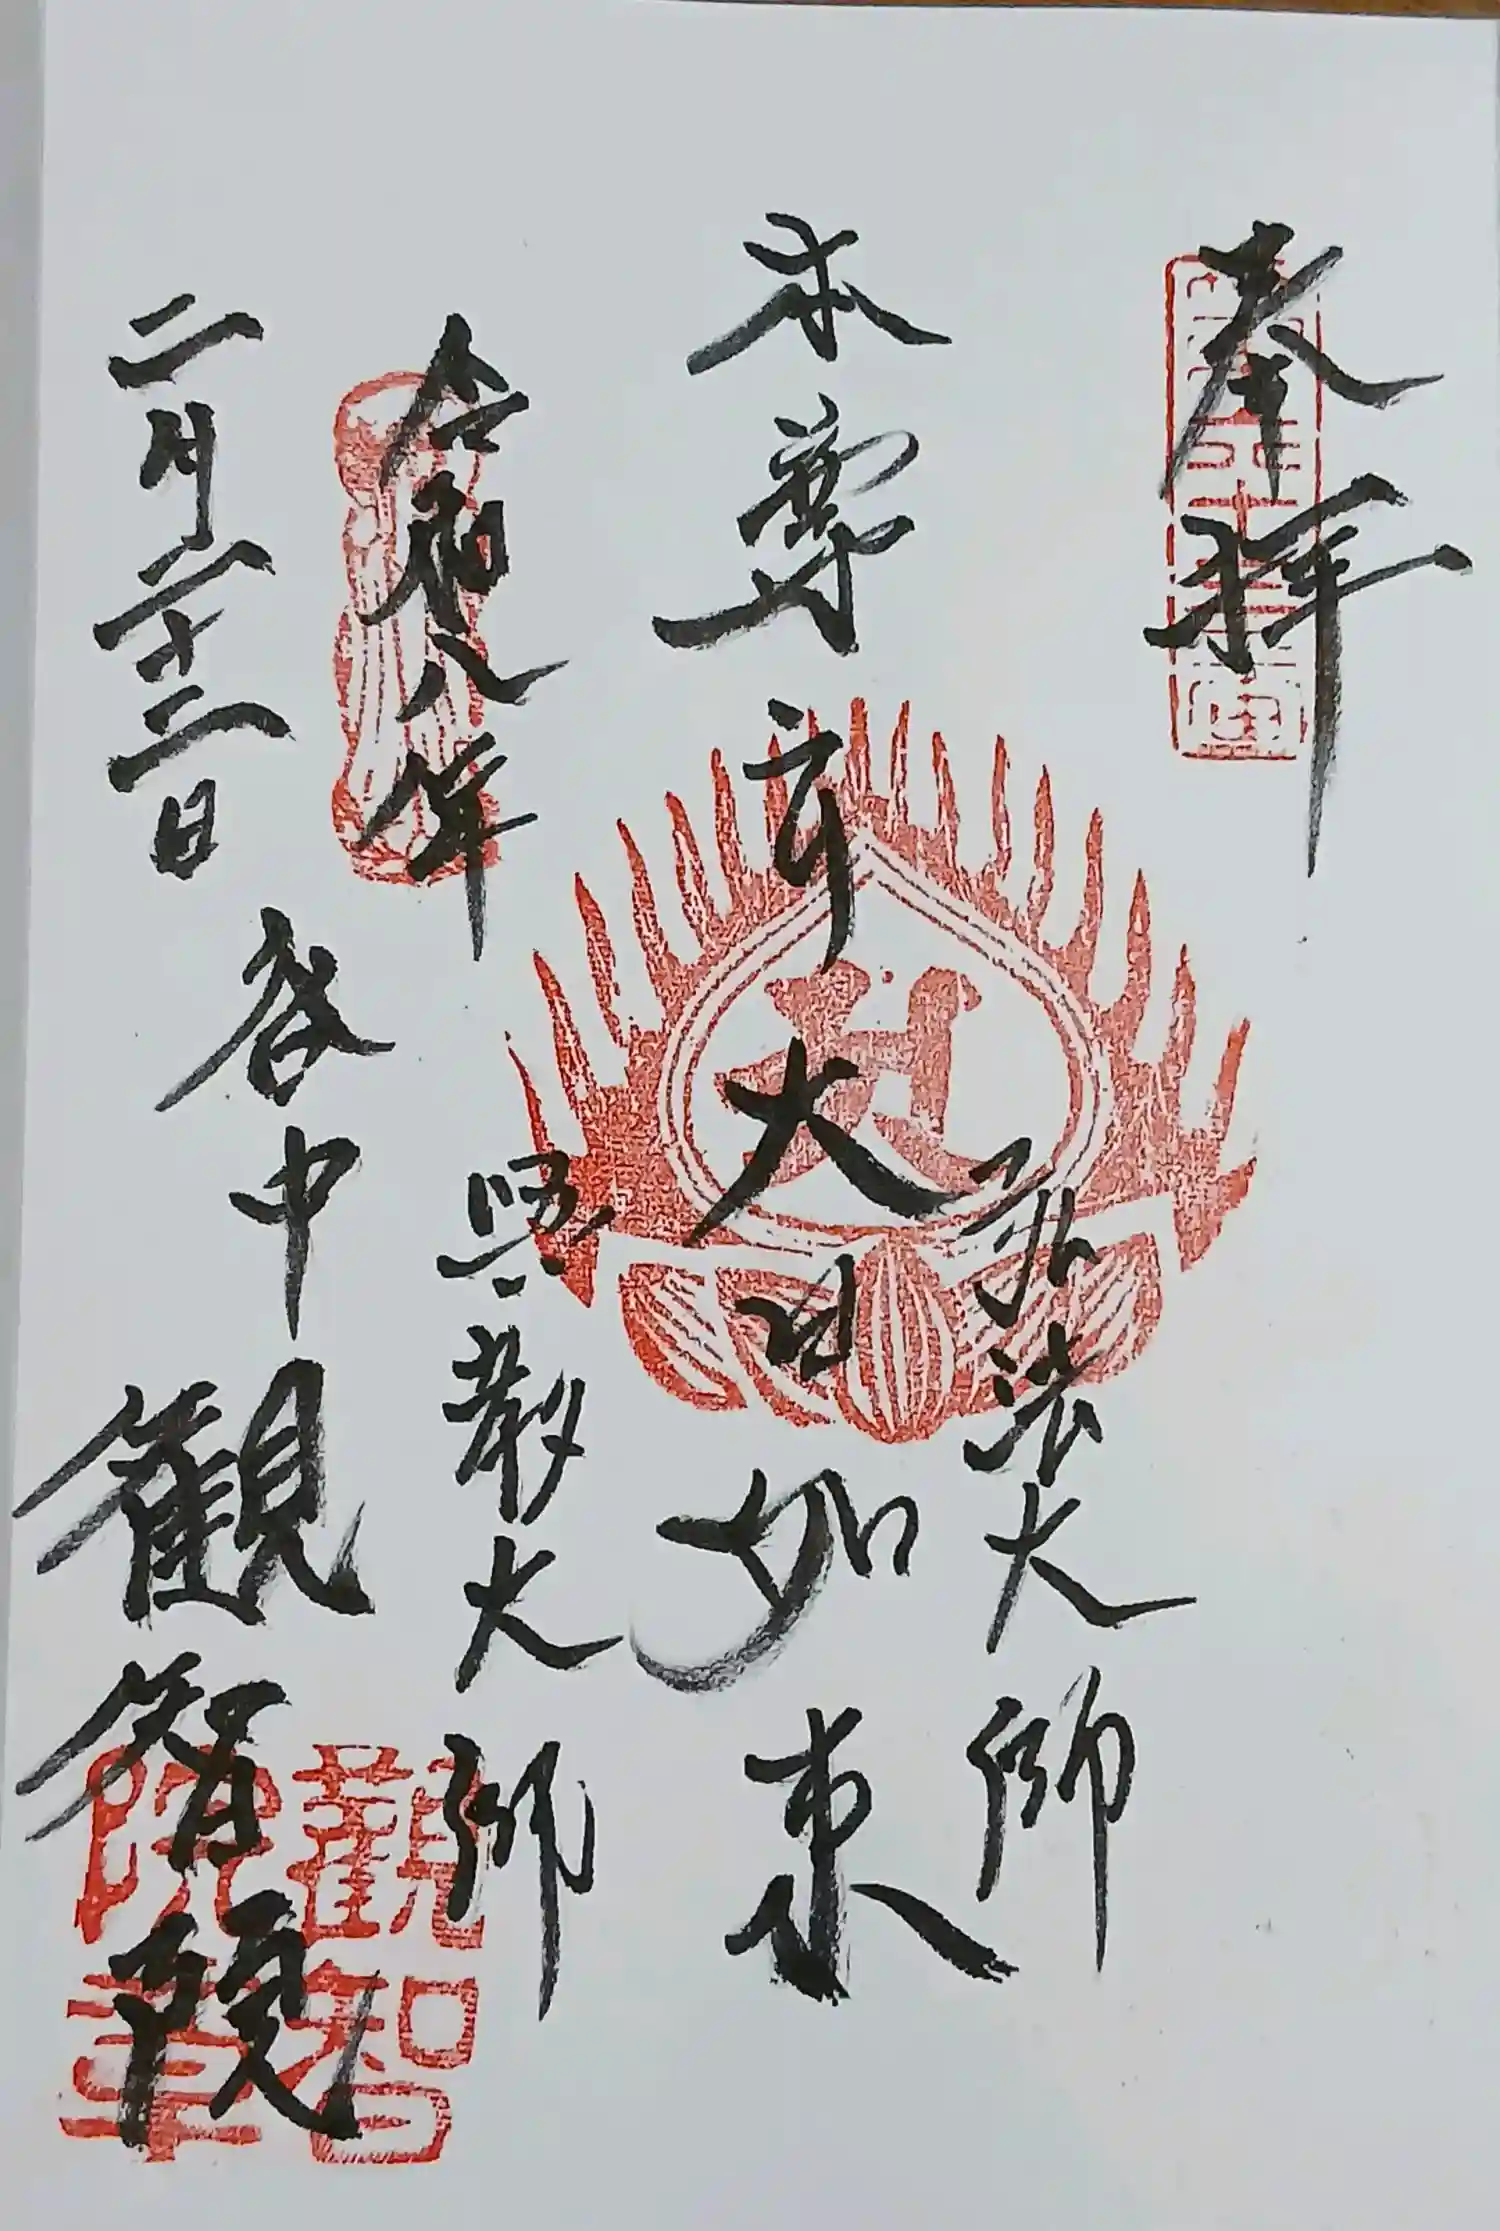 奉拝
弘法大師
本尊 大日如来
興教大師
令和八年
二月二十二日
谷中 観智院
觀智
院章